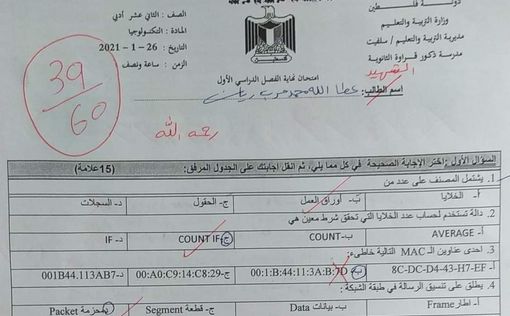 دولة فلسطين
وزارة التربية والتعليم
مديرية التربية والتعليم / سلفيت
مدرسة ذكور قراوة الثانوية
الصف : الثاني عشر أدبي
المادة : التكنولوجيا
التاريخ : 26 – 1 – 2021
الزمن : ساعة ونصف
فلسطين
39
60
امتحان نهاية الفصل الدراسي الأول
الشهيد
اسم الطالب: عطا الله محمد حرب ريان
رحمه الله
السؤال الأول: اختر الإجابة الصحيحة في كل مما يلي، ثم انقل إجابتك على الجدول المرفق: (15علامة)
1. يشتمل المصنف على عدد من
أ- الخلايا ب- أوراق العمل ج- الحقول د- السجلات
2. دالة تستخدم لحساب عدد الخلايا التي تحقق شرط معين هي
أ- AVERAGE ب-COUNT ج-COUNT IF د- IF
3. احدى عناوين الـ MAC التالية خاطىء:
أ-8C-DC-D4-43-H7-EF ب-00:1:B:44:11:3:A:B:7D ج-00:A0:C9:14:C8:29 د-001B44.113AB7
4. يطلق على تنسيق الرسالة في طبقة الشبكة:
أ- اطار Frame ب- بيانات Data ج- قطعة Segment د-حزمة Packet